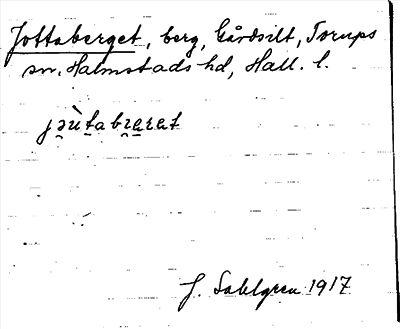 Jottaberget, berg, Gårdsilt, Torups
sn. Halmstads hd, Hall. l.
jɔùtabræræt
J. Sahlgren 1917